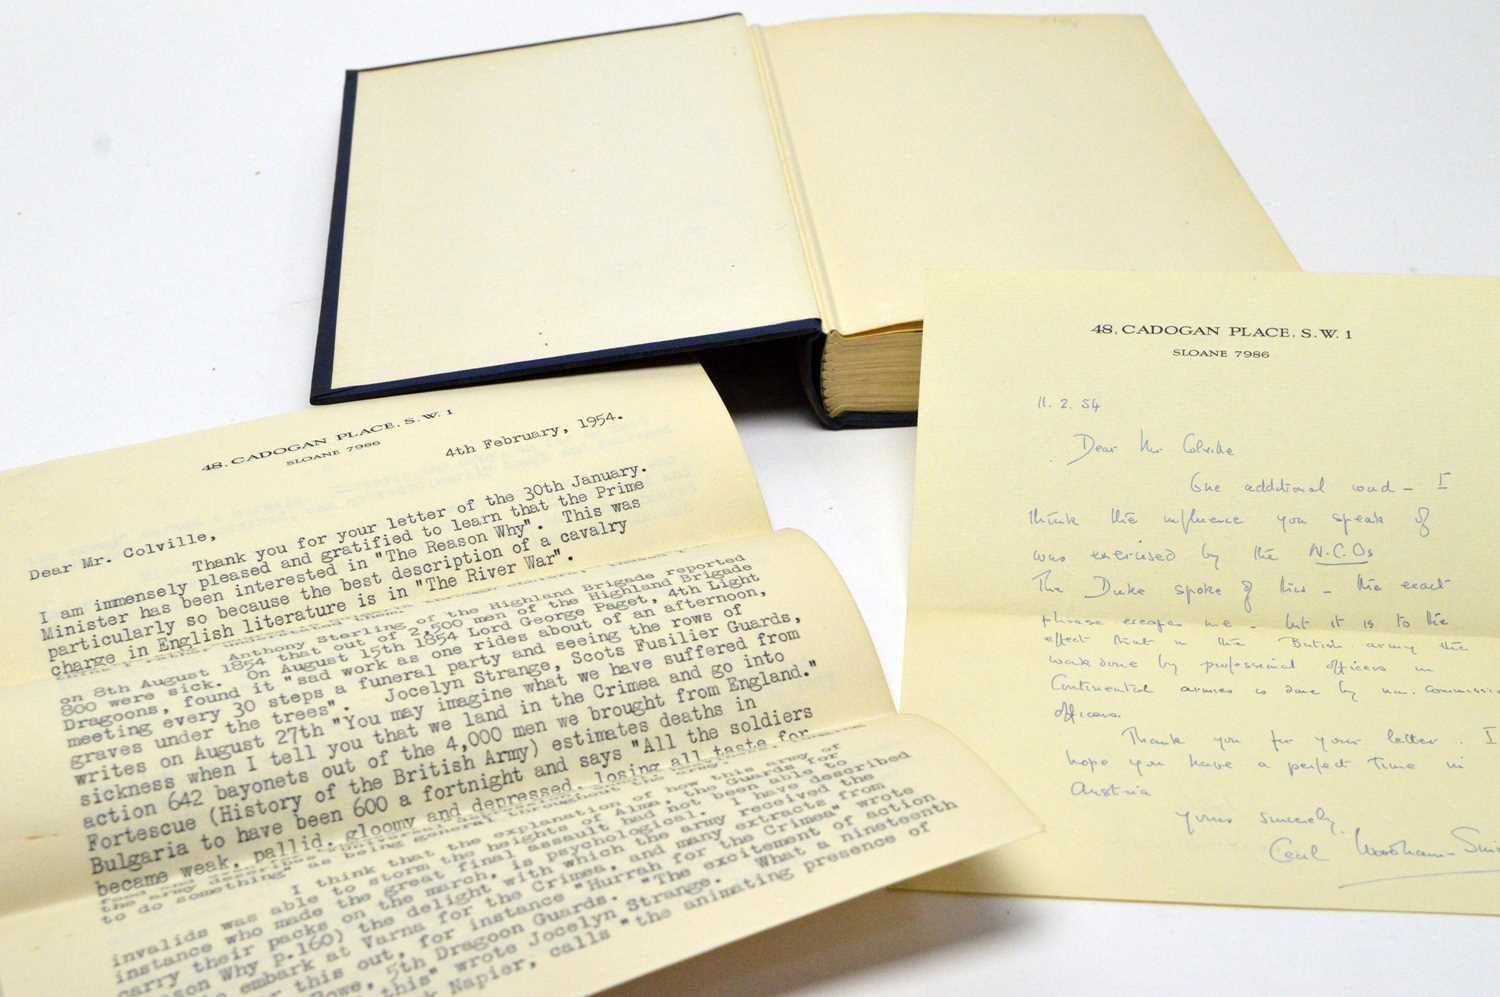 48, CADOGAN PLACE. S.W. 1
SLOANE 7986
4th February, 1954.
Dear Mr. Colville,
Thank you for your letter of the 30th January.
I am immensely pleased and gratified to learn that the Prime
Minister has been interested in "The Reason Why". This was
particularly so because the best description of a cavalry
charge in English literature is in "The River War".
Anthony Sterling of the Highland Brigade reported
on 8th August 1854 that out of 2,500 men of the Highland Brigade
800 were sick. On August 15th 1854 Lord George Paget, 4th Light
Dragoons, found it "sad work as one rides about of an afternoon,
meeting every 30 steps a funeral party and seeing the rows of
graves under the trees". Jocelyn Strange, Scots Fusilier Guards,
writes on August 27th "You may imagine what we have suffered from
sickness when I tell you that we land in the Crimea and go into
action 642 bayonets out of the 4,000 men we brought from England."
Fortescue (History of the British Army) estimates deaths in
Bulgaria to have been 600 a fortnight and says "All the soldiers
became weak, pallid, gloomy and depressed, losing all taste for
to do something" as being general throughout the
I think that the explanation of how this army of
invalids was able to storm the heights of Alma, the Guards for
instance who made the great final assault had not been able to
carry their packs on the march, is psychological. I have described
Why p.160) the delight with which the army received the
embark at Varna for the Crimea, and many extracts from
this out, for instance "Hurrah for the Crimea" wrote
Rowe, 5th Dragoon Guards. "The excitement of action
this" wrote Jocelyn Strange. What a nineteenth
Napier, calls "the animating presence of
48, CADOGAN PLACE. S.W. 1
SLOANE 7986
11. 2. 54
Dear Mr Colville
One additional word - I
think the influence you speak of
was exercised by the N.C.Os
The Duke spoke of this - the exact
phrase escapes me - but it is to the
effect that in the British army the
work done by professional officers in
Continental armies is done by non. commissio
officers.
Thank you for your letter. I
hope you have a perfect time in
Austria
Yours sincerely.
Cecil Woodham-Smi